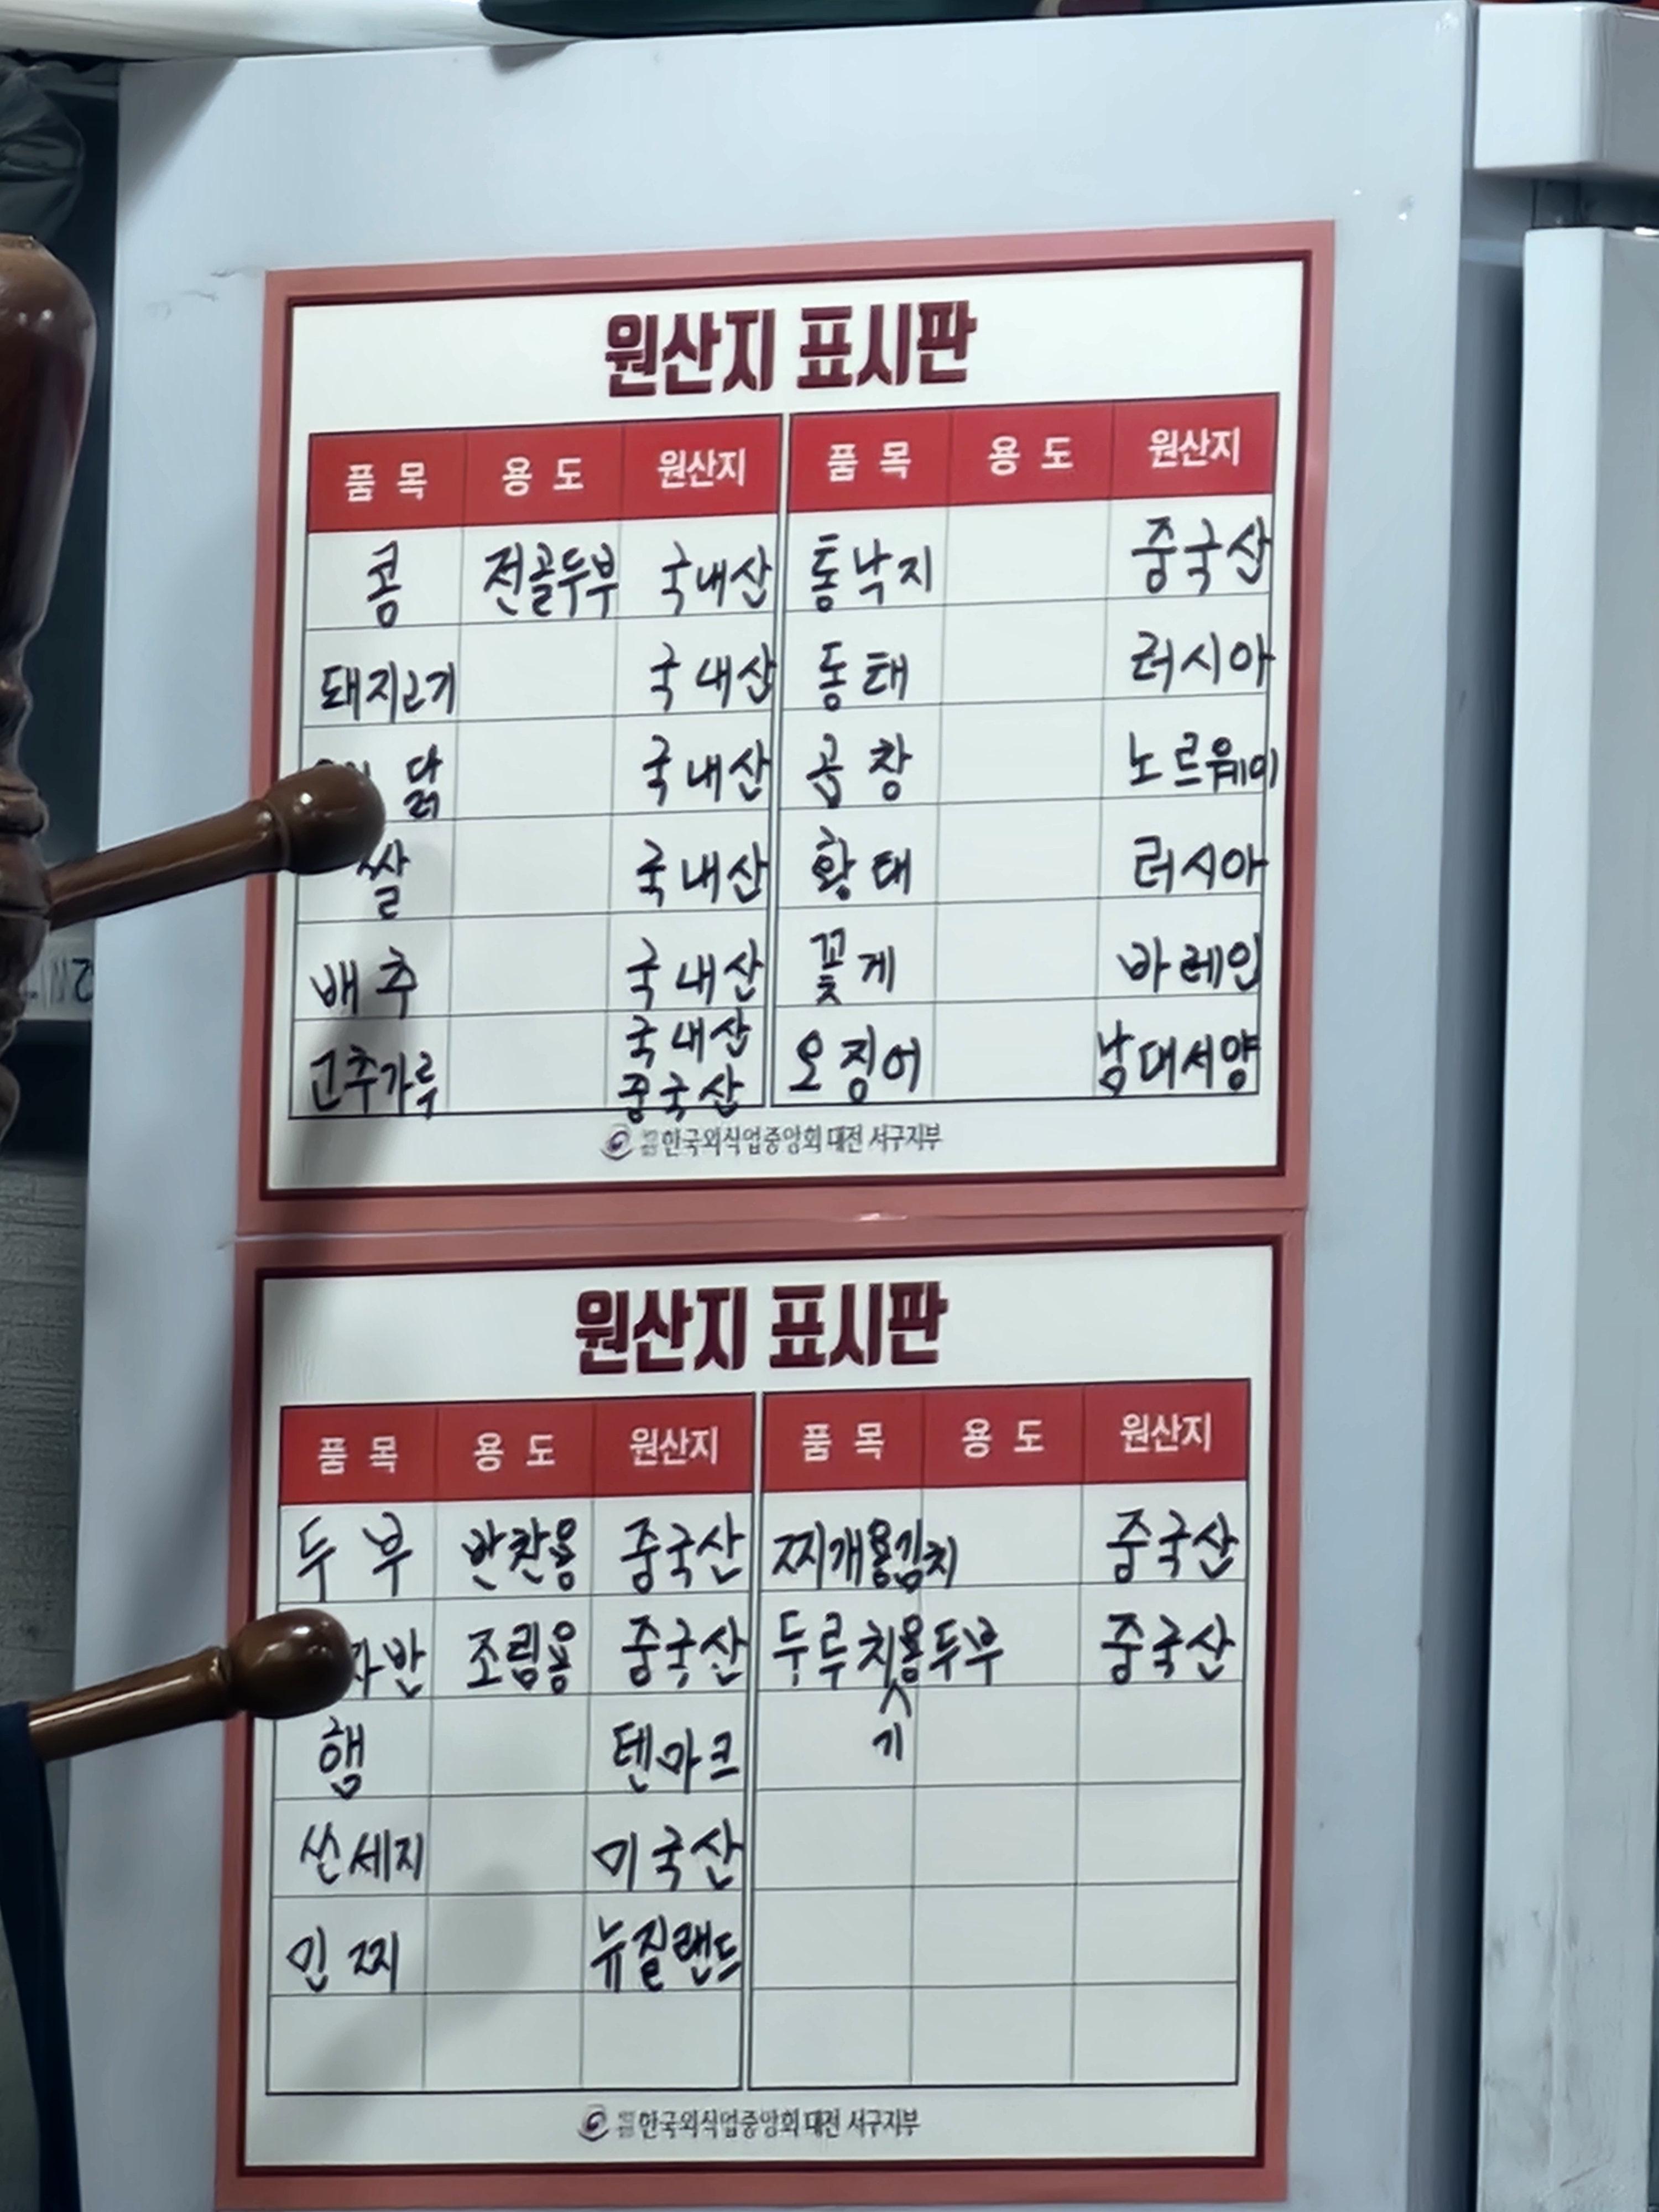 원산지 표시판
품 목 용 도 원산지 품 목 용 도 원산지
콩 전골두부 국내산 통낙지 중국산
돼지고기 국내산 동태 러시아
닭 국내산 곱창 노르웨이
쌀 국내산 황태 러시아
배추 국내산 꽃게 바레인
고추가루 국내산 중국산 오징어 남대서양
한국외식업중앙회 대전 서구지부
원산지 표시판
품 목 용 도 원산지 품 목 용 도 원산지
두부 반찬용 중국산 찌개용김치 중국산
자반 조림용 중국산 두루치용두부 중국산
기
햄 텐마크
쏘세지 미국산
인찌 뉴질랜드
한국외식업중앙회 대전 서구지부